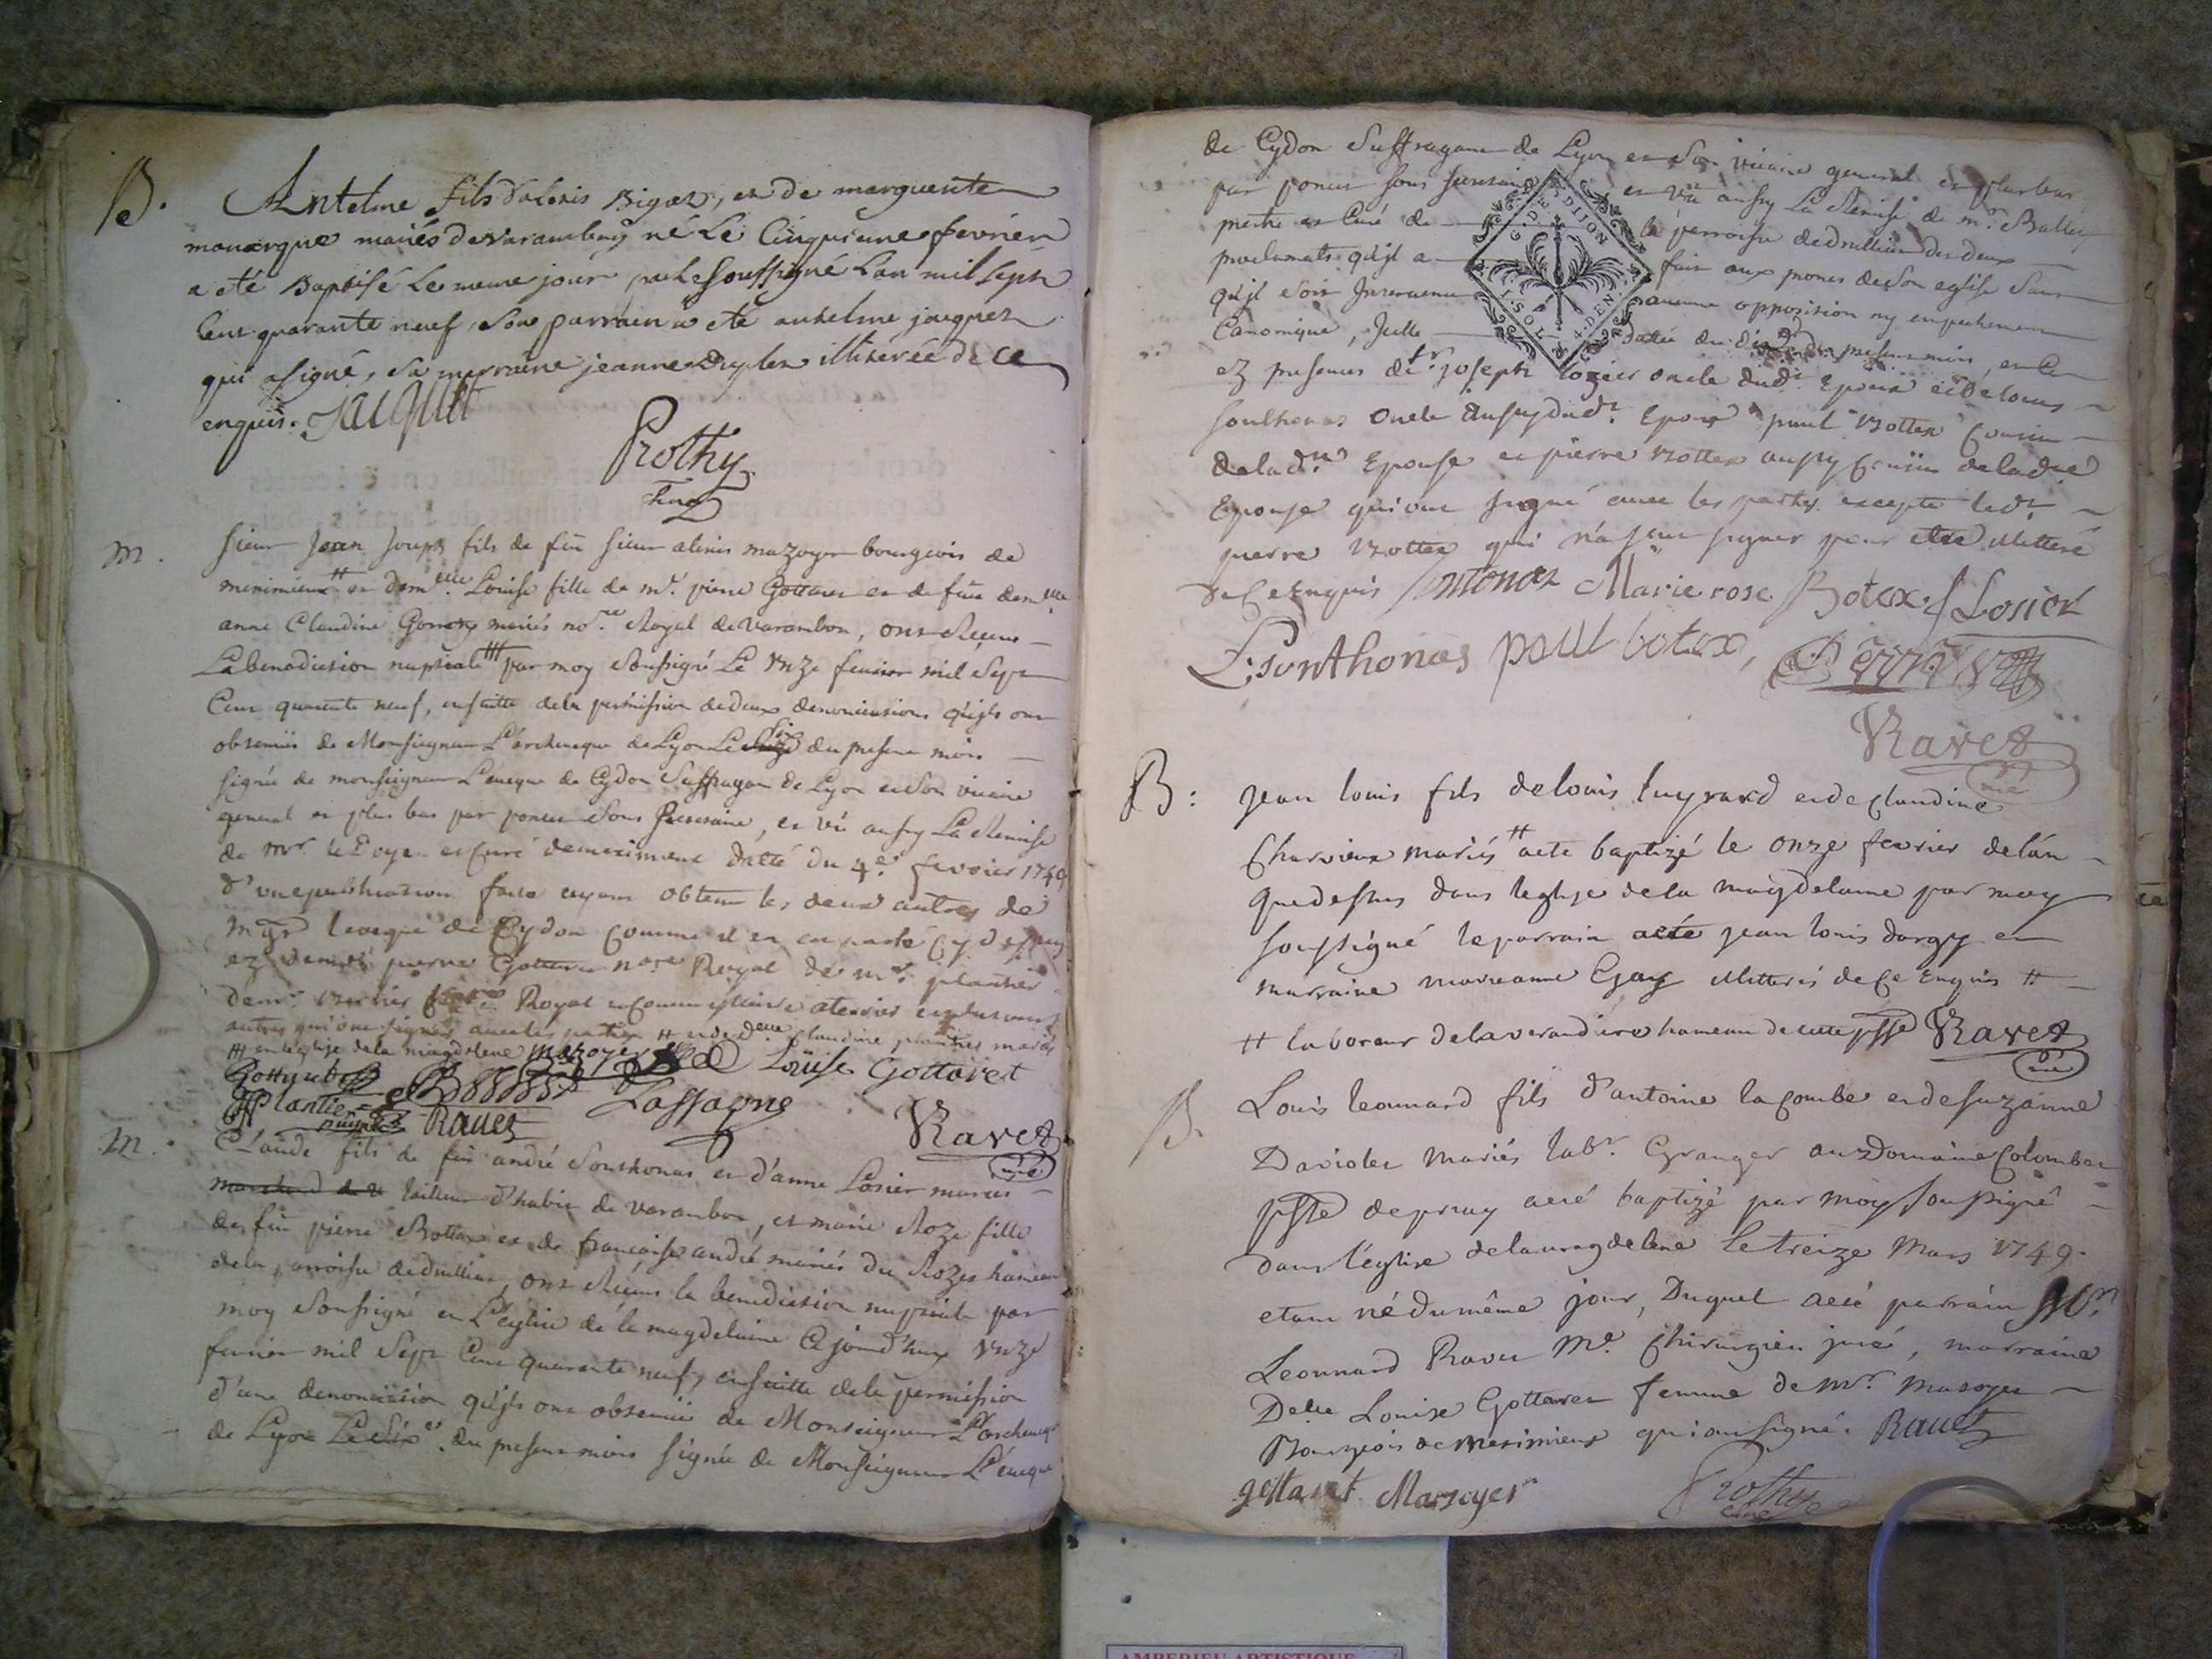 B. Antelme fils d'alexis Bigot, et de marguerite
mariés de varambon né le Cinquieme fevrier
a eté Baptisé le meme jour par le soussigné Lan mil sept
Cent quarante neuf, Son parrain a eté antelme jacquet
qui a signé, Sa marraine jeanne illiterée de ce
enquis. Jacquet
Prothy
Curé
m. Sieur Jean Joseph fils de feu Sieur alexis mazoyer bourgeois de
meximieux # et dem.lle Louise fille de mr. pierre Gottaret et de feue demlle
anne Claudine mariés no.re Royal de Varambon, ont Receu
La benediction nuptiale ### par moy Soussigné Le Unze fevrier mil Sept
Cent quarante neuf, ensuitte de la permission de deux denonciations qu'ils ont
obtenües de Monseigneur L'archeveque de Lyon Le Six du present mois
signée de monseigneur L'eveque de Cydon Suffragant de Lyon et Son vicaire
general et plus bas par poncet Sous Secretaire, et vû aussy La Remise
de mr. le Doyen et Curé de meximieux datté du 4.e fevrier 1749
d'une publication faite ayant obtenu les deux autres de
mgr leveque de Cydon comme il en est parlé Cy dessus
ez de mr. pierre Gottaret nore Royal de mr. plantier
de mr. Royal et Commissaire a terrier et plusieurs
autres qui ont signés avec les parties # et de d.elle Claudine plantier mariés
### en leglise de la magdelene mazoyer Louise Gottaret
Plantier Ravet Lassagne
Ravet
m. Claude fils de feu andré Sonthonas et d'anne Losier mariés
tailleur d'habit de varambon, et marie Roze fille
de feu pierre Bottex et de françoise andré mariés du Rozey hameau
de la parroisse de druillia, ont Receu la benediction nuptiale par
moy Soussigné en L'eglise de la magdelaine Ce jourd'huy Unze
fevrier mil Sept Cent quarante neuf, ensuitte de la permission
d'une denonciation qu'ils ont obtenüe de Monseigneur L'archeveque
de Lyon Le Six.e du present mois Signée de Monseigneur L'éveque
de Cydon Suffragant de Lyon et Son vicaire general et plus bas
par poncet Sous Secretaire et vû aussy La Remise de mr. Ballet
pretre et Curé de la parroisse de druillia des deux
proclamats qu'il a fait aux prones de Son eglise Sans
qu'il soit Intervenu aucune opposition ny empechement
Canonique, Icelle dattée du present mois, en
G. DE DIJON
1. SOL 4. DEN.
ez presences de Sr. joseph lozier oncle dudt. Epoux et de louis
Sonthonas oncle aussy dudt. Epoux paul Bottex Cousin
de ladte. Epouse et pierre Bottex aussy Cousin de ladte
Epouse qui ont signé avec les parties excepté ledt.
pierre Bottex qui n'a sceu signer pour etre illitteré
de Ce enquis Sontonax Marie rose Botex J Losier
L: Sonthonas paul botex,
Ravet
vic
B: Jean louis fils de louis luyrard et de Claudine
Charvieux mariés # a eté baptizé le onze fevrier de l'an
que dessus dans leglise de la magdelaine par moy
soussigné le parrain a eté jean louis dargy et
marraine marianne Gay illitterés de Ce Enquis #
# laboreur de la verandiere hameau de cette psse Ravet
vic
B. Louis leonnard fils d'antoine lacombe et de suzanne
Daviolet mariés labr. Granger au Domaine Colomber
psse de priay a eté baptizé par moy soussigné
dans l'églize de la magdelene le treize Mars 1749
etant né du même jour, Duquel a eté parrain Mr
Leonnard Ravet Me. Chirurgien juré, marraine
Delle Louise Gottaret femme de Mr. Mazoyer
Bourgeois de meximieux qui ont signé. Ravet
gottaret Mazoyer Prothy
Curé
AMBERIEU ARTISTIQUE